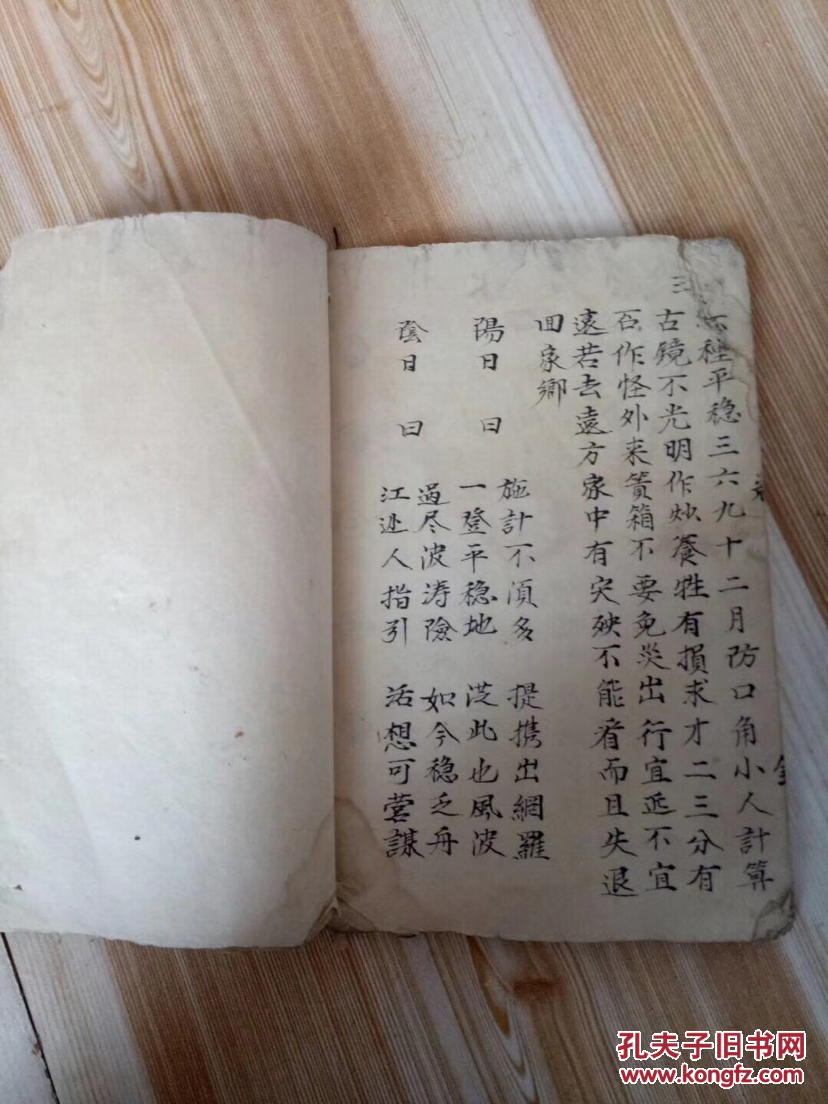 三
種平稳三六九十二月防口角小人計算
古镜不光明作炒養牲有損求才二三分有
否作怪外来箦箱不要免災出行宜近不宜
遠若去遠方家中有灾殃不能看而且失退
回家鄉
陽日曰
施計不須多 提携出網羅
一登平稳地 従此也風波
陰日曰
過尽波涛險 如今稳乏舟
江边人指引 活想可营謀
孔夫子旧书网
www.kongfz.com